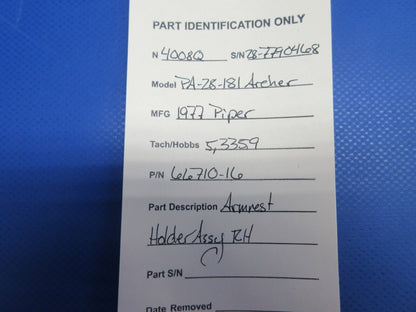 PART IDENTIFICATION ONLY
N 4008Q S/N 28-7790468
Model PA-28-181 Archer
MFG 1977 Piper
Tach/Hobbs 5,3359
P/N 66710-16
Part Description Armrest
Holder Assy RH
Part S/N
Date Removed